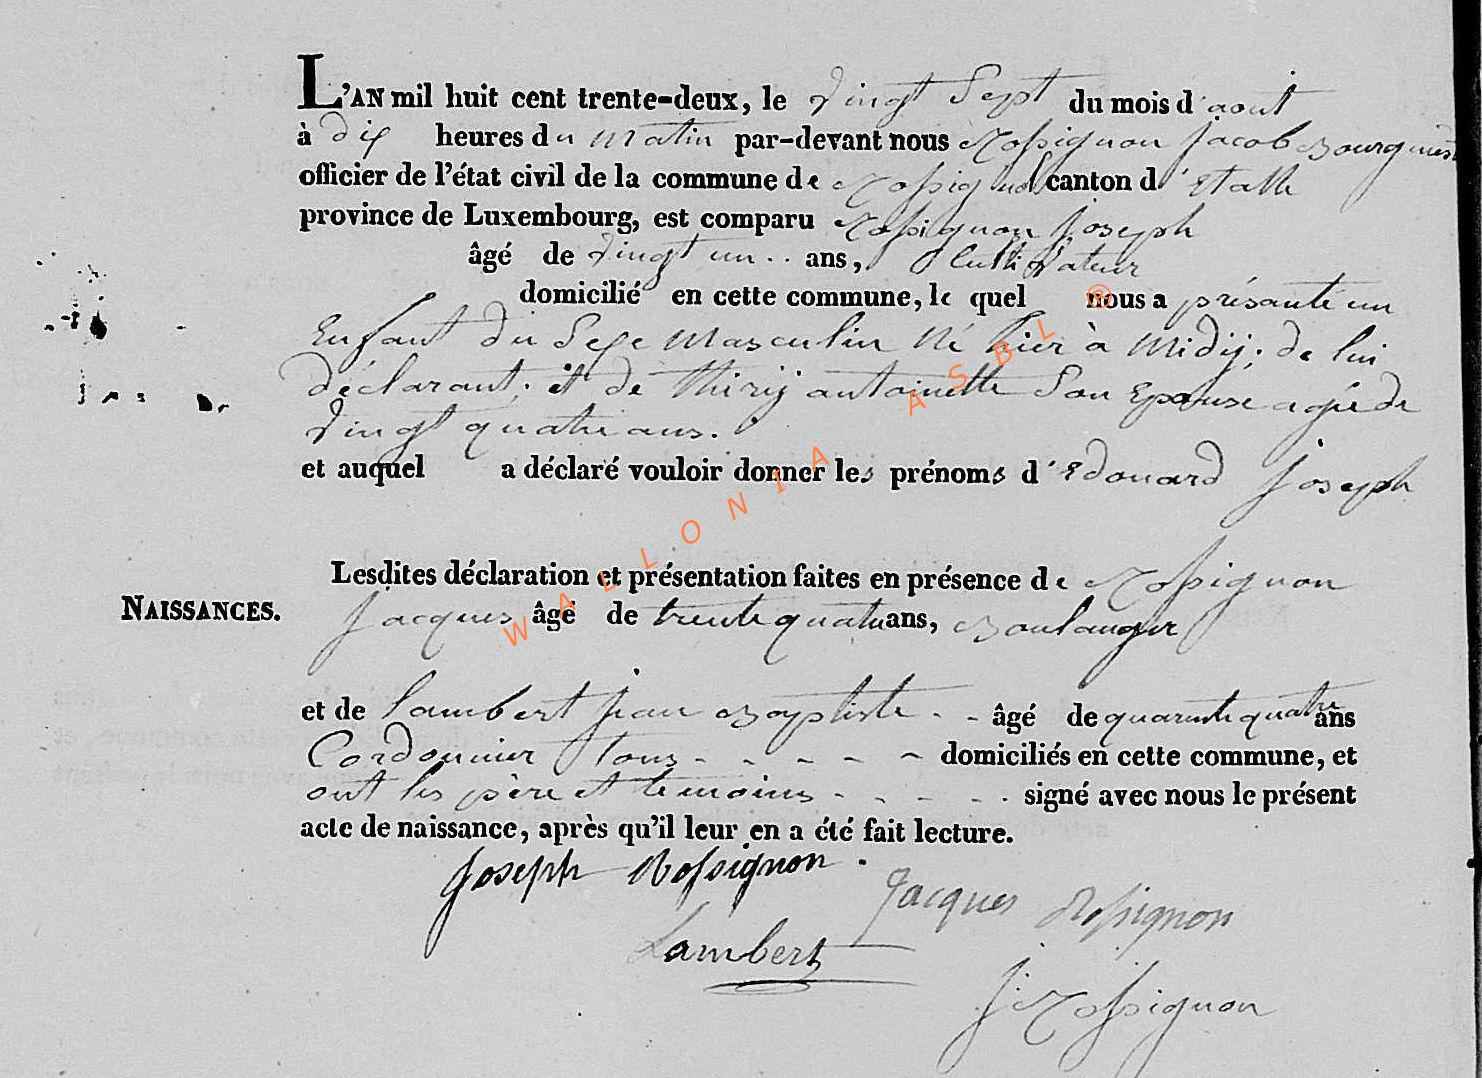 L'AN mil huit cent trente-deux, le vingt Sept du mois d'aout
à dix heures du matin par-devant nous Rossignon Jacob Bourgmest
officier de l'état civil de la commune de Rossignol canton d'Etalle
province de Luxembourg, est comparu Rossignon Joseph
âgé de vingt un .. ans, Cultivateur
domicilié en cette commune, le quel nous a présanté un
Enfant du Sexe Masculin Né hier à Midij. de lui
déclarant, et de thirij antoinette Son Epouse agée de
vingt quatre ans.
et auquel a déclaré vouloir donner les prénoms d'Edouard Joseph
Lesdites déclaration et présentation faites en présence de Rossignon
NAISSANCES.
Jacques âgé de trente quatre ans, Boulanger
et de Lambert jean Baptiste - - âgé de quarente quatre ans
Cordonnier tous - - - - - domiciliés en cette commune, et
ont les père et temoins - - - - . signé avec nous le présent
acte de naissance, après qu'il leur en a été fait lecture.
Joseph Rossignon .
Jacques Rossignon
Lambert
J Rossignon
WALLONIA ASBL ®